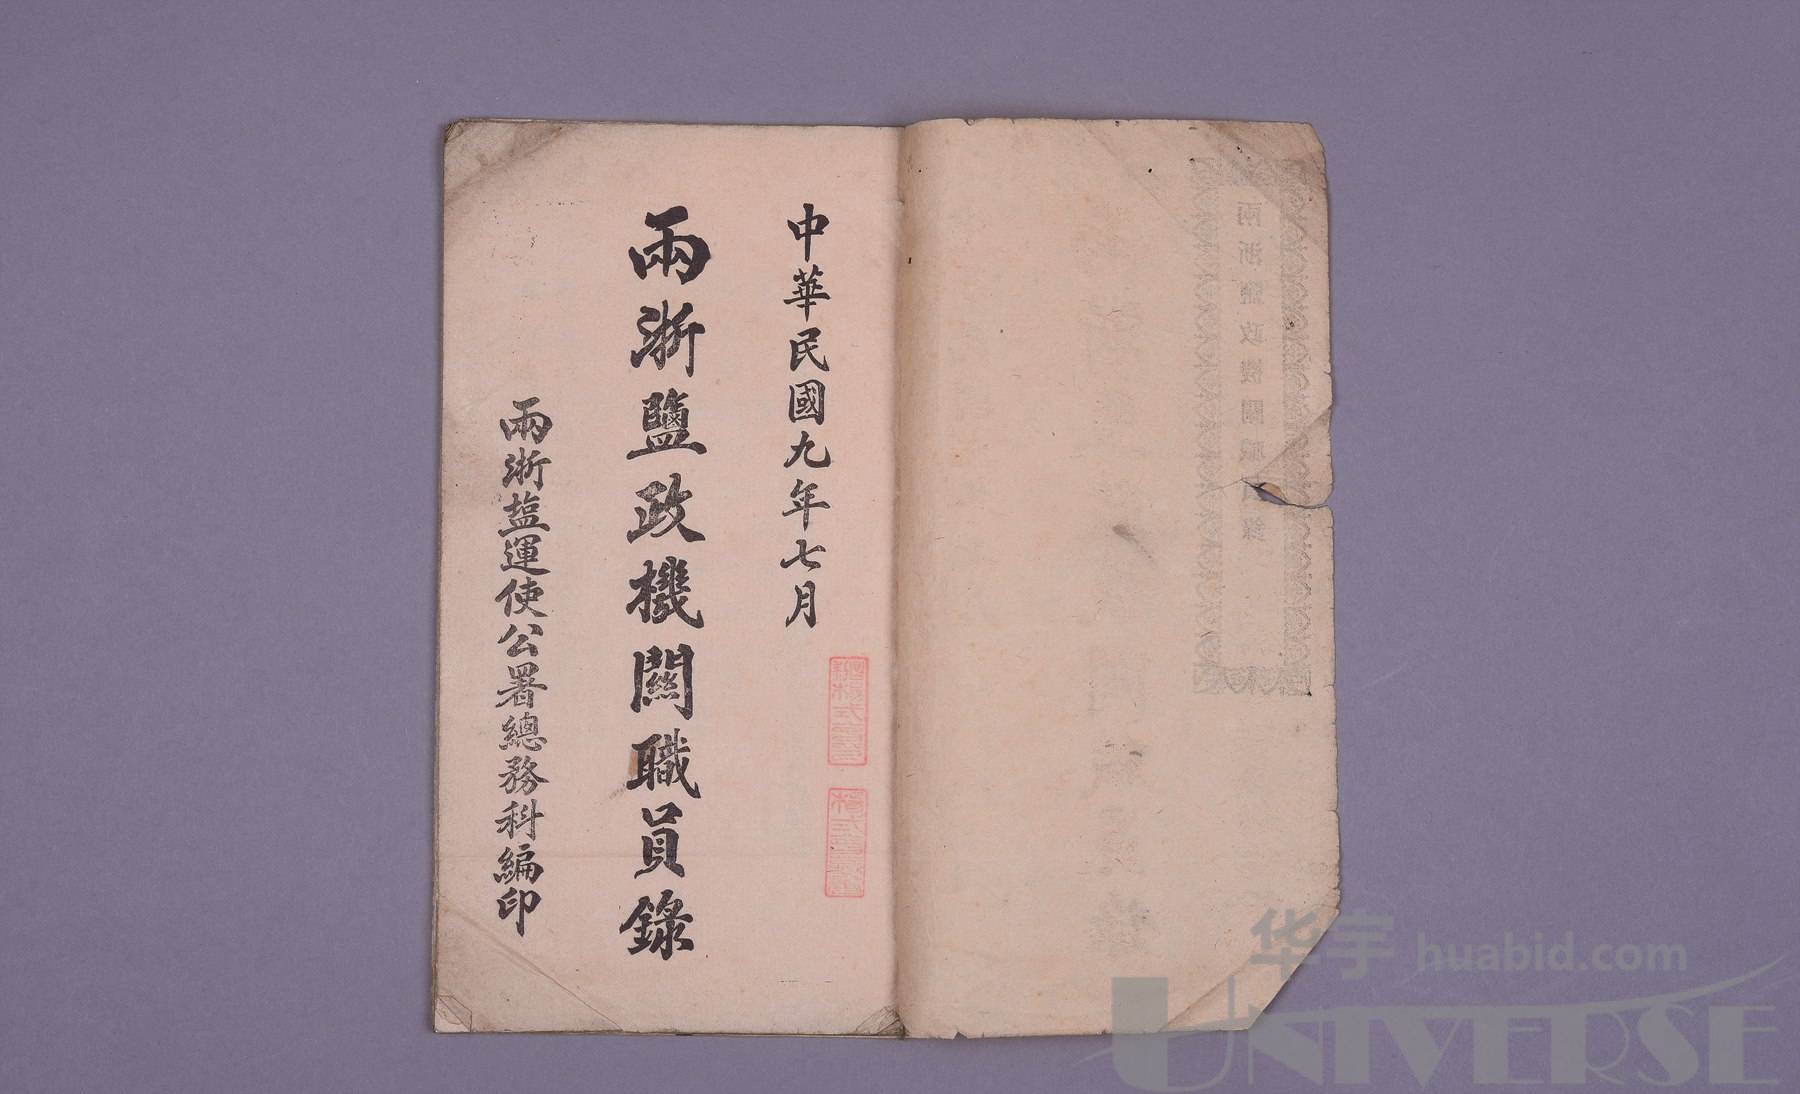 中華民國九年七月
兩浙鹽政機關職員錄
兩浙盐運使公署總務科編印
兩浙鹽政機關職員錄
华宇 huabid.com
UNIVERSE